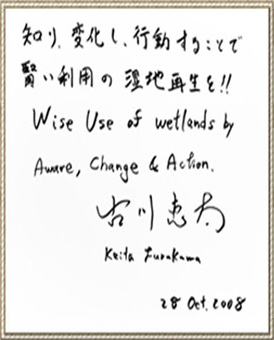 知り、変化し、行動することで
賢い利用の湿地再生を!!
Wise Use of wetlands by
Aware, Change & Action.
古川恵太
Keita Furukawa
28 Oct. 2008